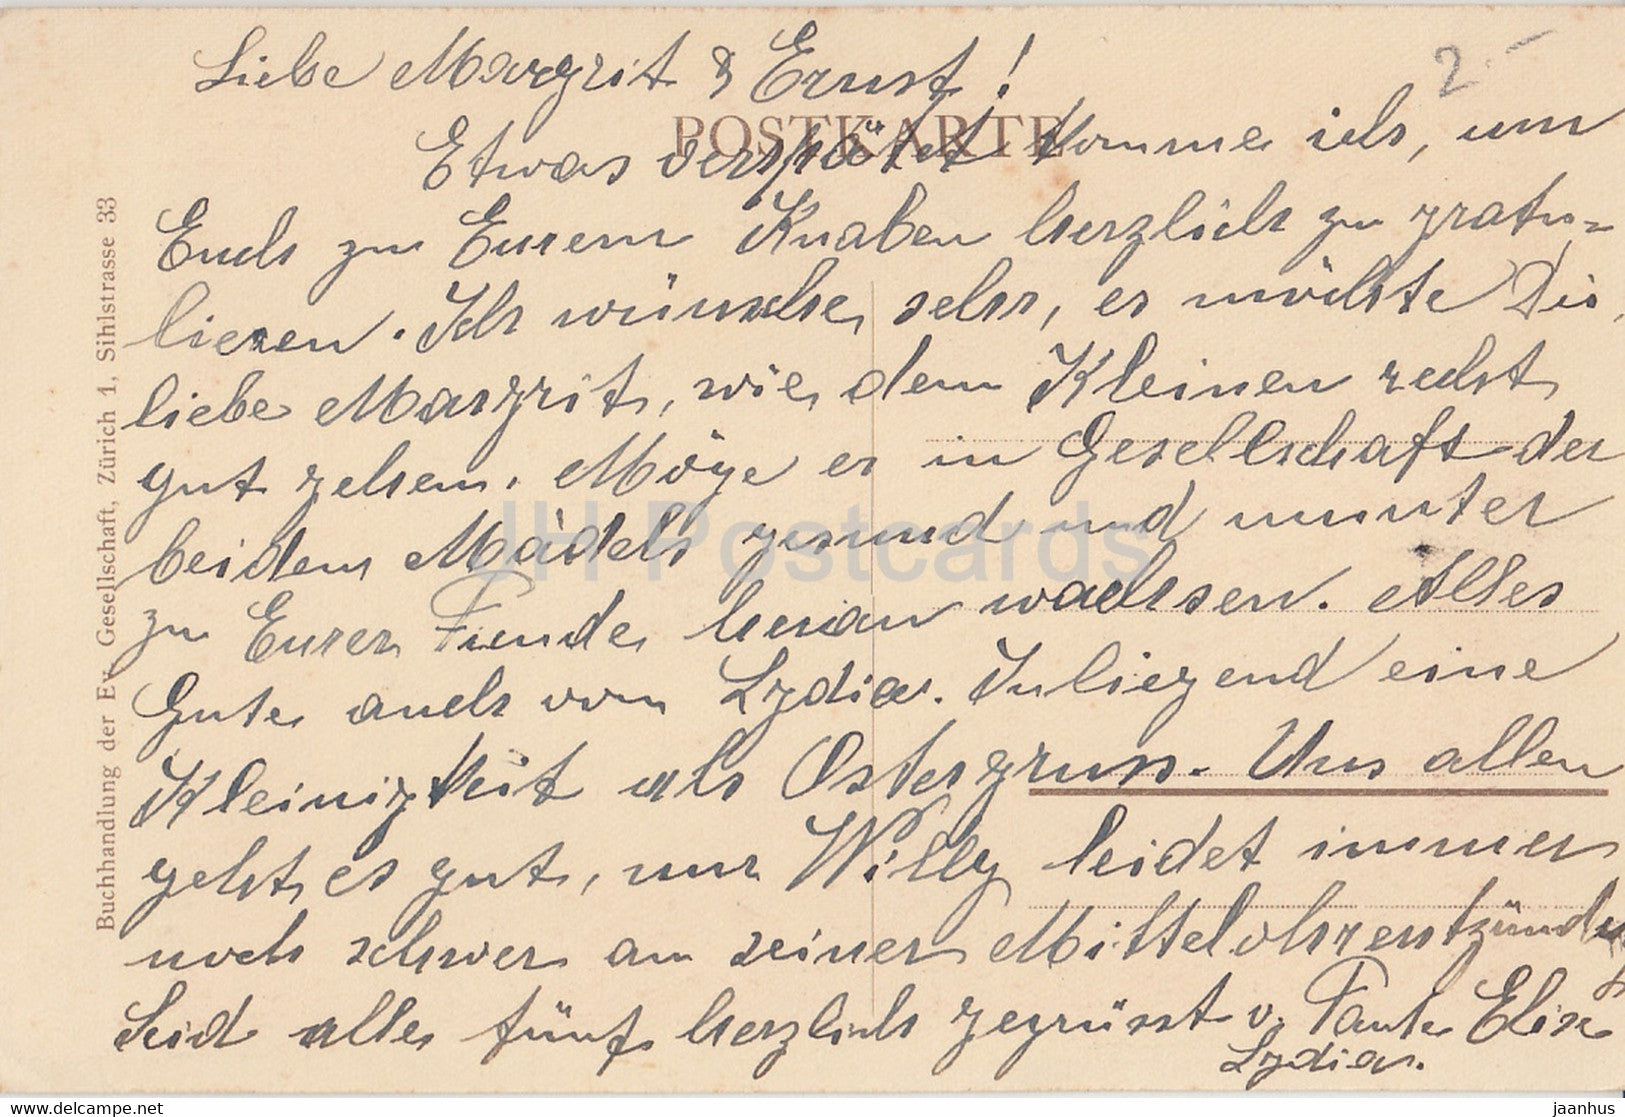 Liebe Margrit & Ernst!
2.-
POSTKARTE
Etwas verspätet komme ich, um
Euch zu Eurem Knaben herzlich zu gratu=
lieren. Ich wünsche sehr, es möchte Dir,
liebe Margrit, wie dem Kleinen recht
gut gehen. Möge er in Gesellschaft der
beiden Mädels gesund und munter
zu Eurer Freude heran wachsen. Alles
Gute auch von Lydia. Inliegend eine
Kleinigkeit als Ostergruss. Uns allen
geht es gut, nur Willy leidet immer
noch schwer an seiner Mittelohrentzündung
Seid alle fünf herzlich gegrüsst v. Tante Elise
Lydia.
Buchhandlung der Ev. Gesellschaft, Zürich 1, Sihlstrasse 33
JH Postcards
https://www.delcampe.net
jaanhus